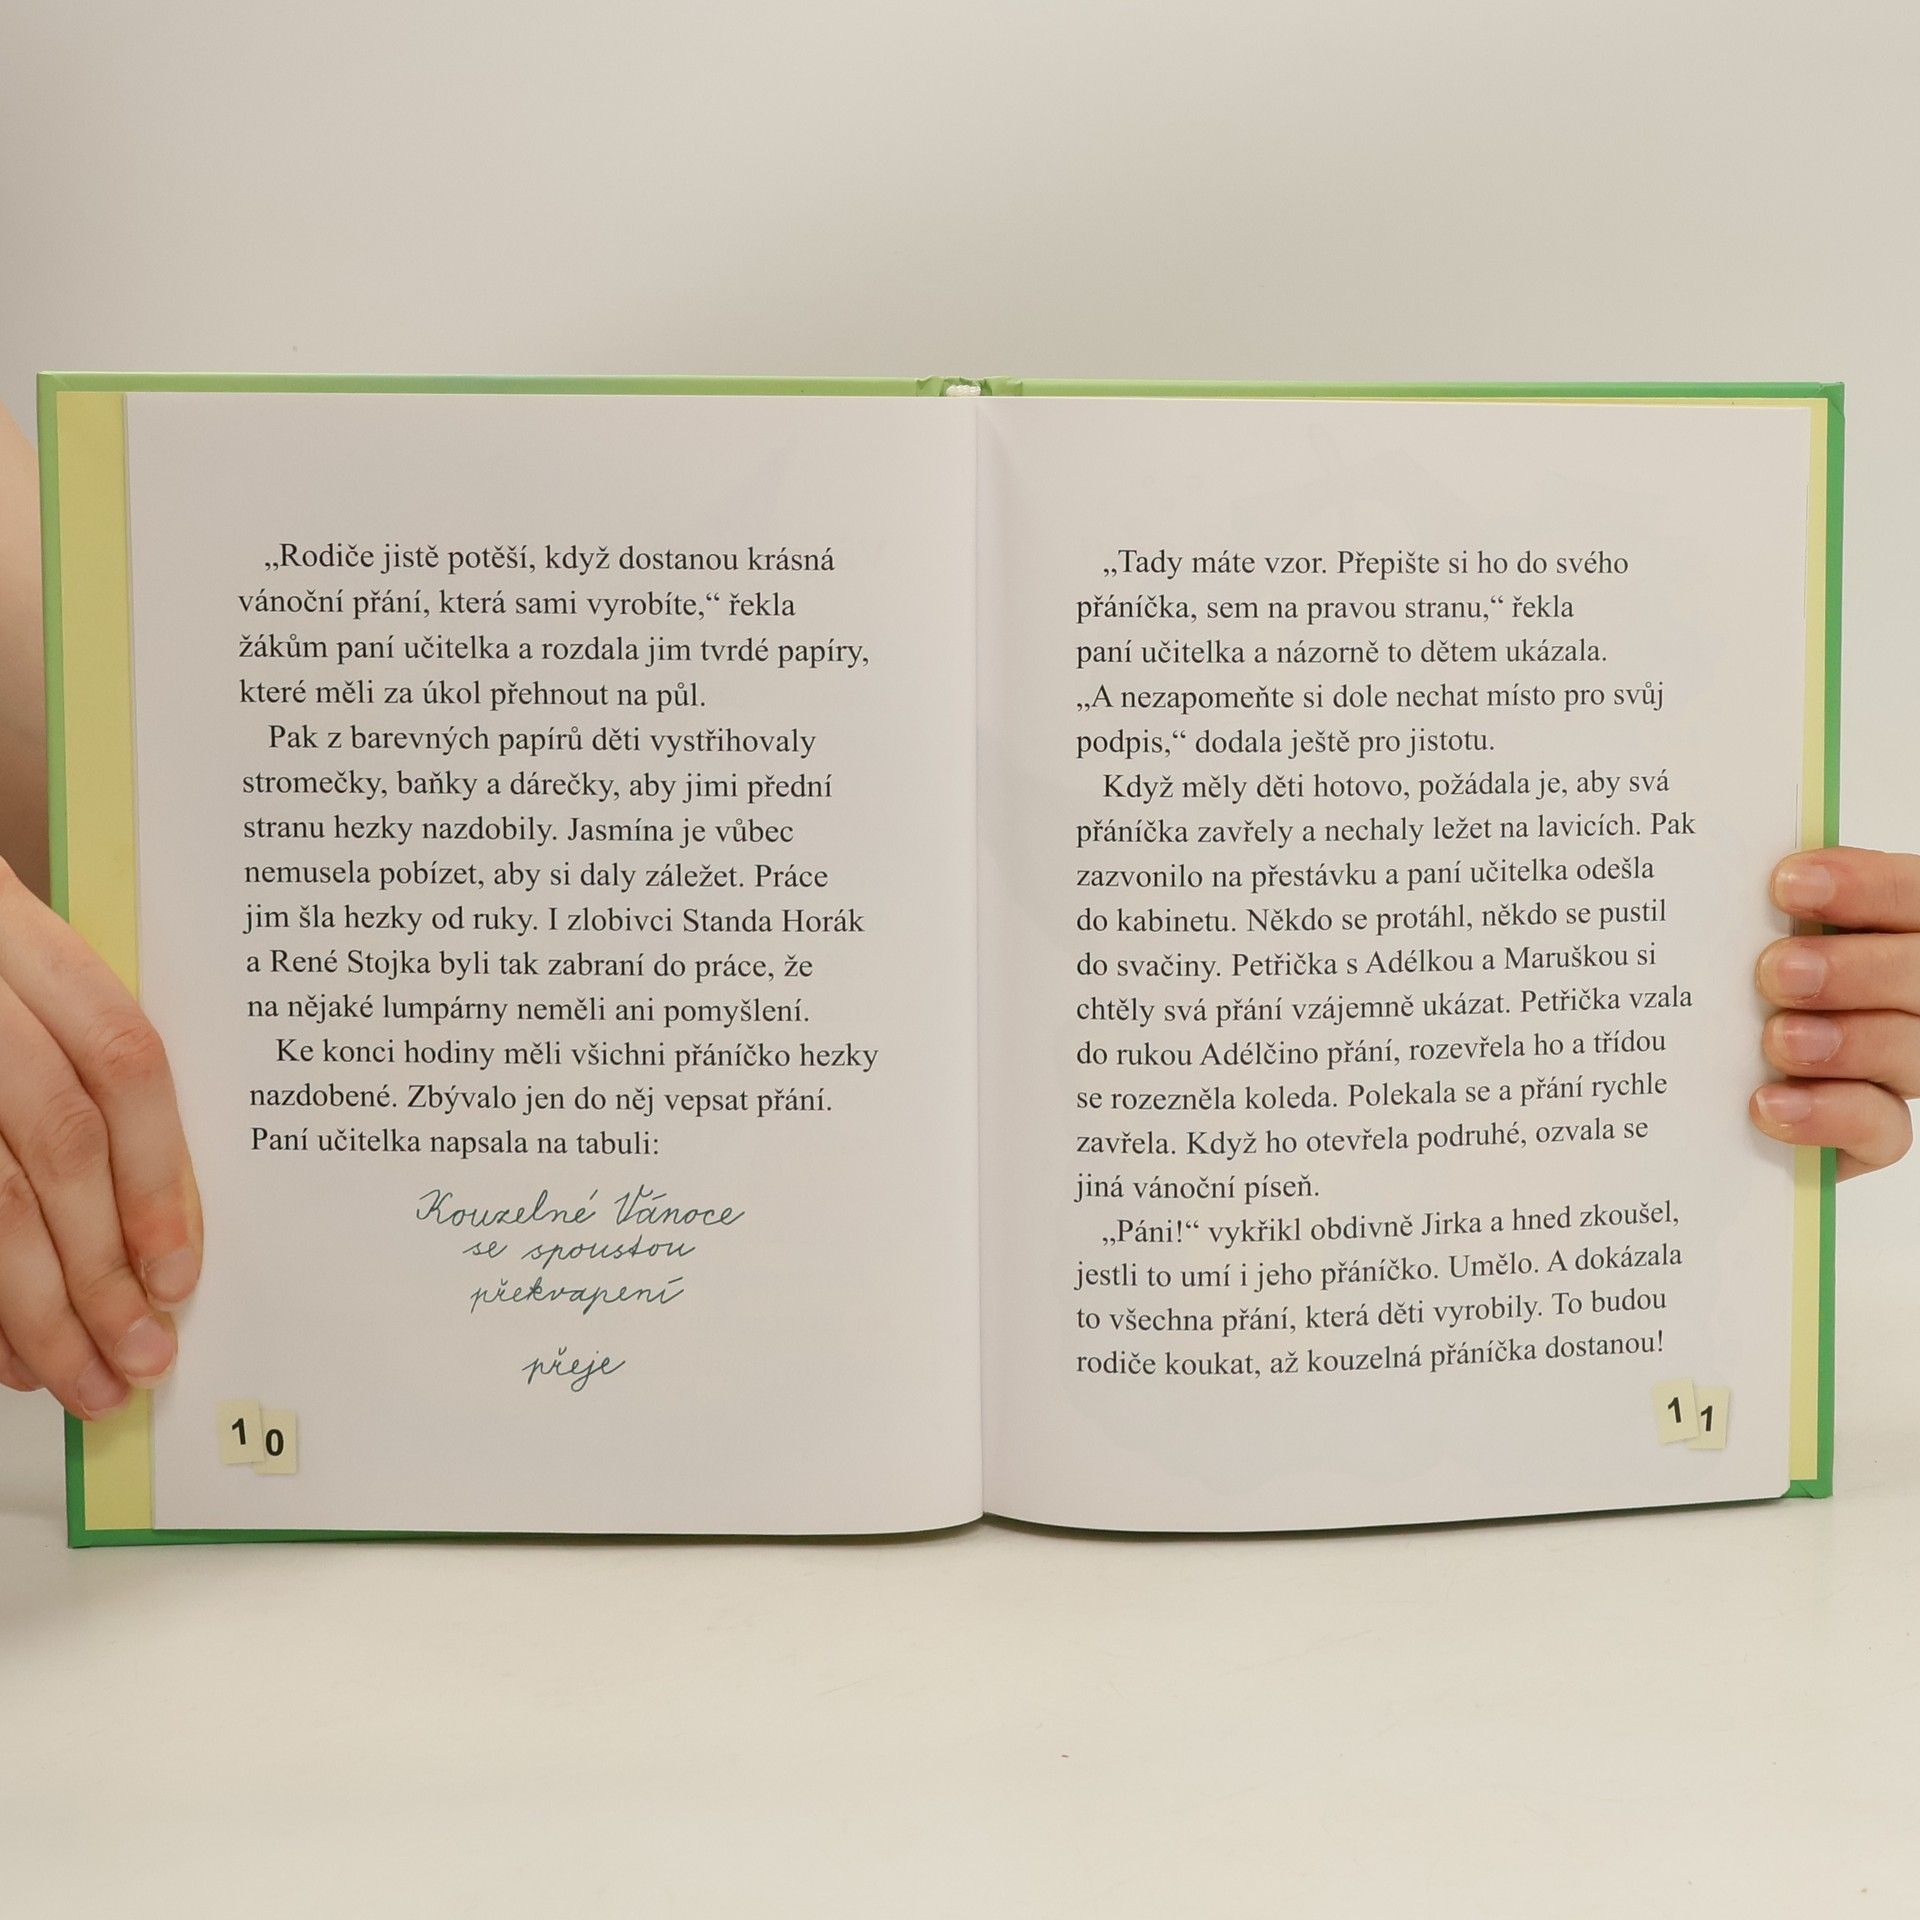 „Rodiče jistě potěší, když dostanou krásná
vánoční přání, která sami vyrobíte,“ řekla
žákům paní učitelka a rozdala jim tvrdé papíry,
které měli za úkol přehnout na půl.
Pak z barevných papírů děti vystřihovaly
stromečky, baňky a dárečky, aby jimi přední
stranu hezky nazdobily. Jasmína je vůbec
nemusela pobízet, aby si daly záležet. Práce
jim šla hezky od ruky. I zlobivci Standa Horák
a René Stojka byli tak zabraní do práce, že
na nějaké lumpárny neměli ani pomyšlení.
Ke konci hodiny měli všichni přáníčko hezky
nazdobené. Zbývalo jen do něj vepsat přání.
Paní učitelka napsala na tabuli:
Kouzelné Vánoce
se spoustou
překvapení
přeje
10
„Tady máte vzor. Přepište si ho do svého
přáníčka, sem na pravou stranu,“ řekla
paní učitelka a názorně to dětem ukázala.
„A nezapomeňte si dole nechat místo pro svůj
podpis,“ dodala ještě pro jistotu.
Když měly děti hotovo, požádala je, aby svá
přáníčka zavřely a nechaly ležet na lavicích. Pak
zazvonilo na přestávku a paní učitelka odešla
do kabinetu. Někdo se protáhl, někdo se pustil
do svačiny. Petřička s Adélkou a Maruškou si
chtěly svá přání vzájemně ukázat. Petřička vzala
do rukou Adélčino přání, rozevřela ho a třídou
se rozezněla koleda. Polekala se a přání rychle
zavřela. Když ho otevřela podruhé, ozvala se
jiná vánoční píseň.
„Páni!“ vykřikl obdivně Jirka a hned zkoušel,
jestli to umí i jeho přáníčko. Umělo. A dokázala
to všechna přání, která děti vyrobily. To budou
rodiče koukat, až kouzelná přáníčka dostanou!
11